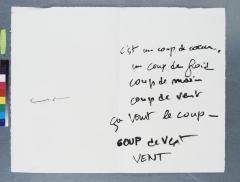 c'est un coup de cœur,
un coup de froid
coup de main
coup de vent
ça vaut le coup –
COUP de VENT
VENT